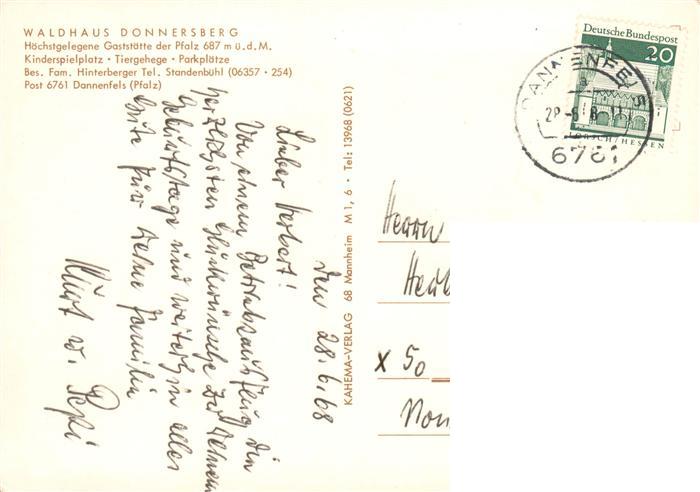 WALDHAUS DONNERSBERG
Höchstgelegene Gaststätte der Pfalz 687 m ü. d. M.
Kinderspielplatz · Tiergehege · Parkplätze
Bes. Fam. Hinterberger Tel. Standenbühl (06357 · 254)
Post 6761 Dannenfels (Pfalz)
den 28.6.68
Lieber Herbert!
Von einem Betriebsausflug die
herzlichsten Glückwünsche zu Deinem
Geburtstage und weiterhin alles
Gute für Deine Familie
Kurt u. Pepi
KAHEMA-VERLAG 68 Mannheim M 1, 6 · Tel: 13968 (0621)
Deutsche Bundespost
20
LORSCH/HESSEN
DANNENFELS
6761
Herrn
Herb
x 50